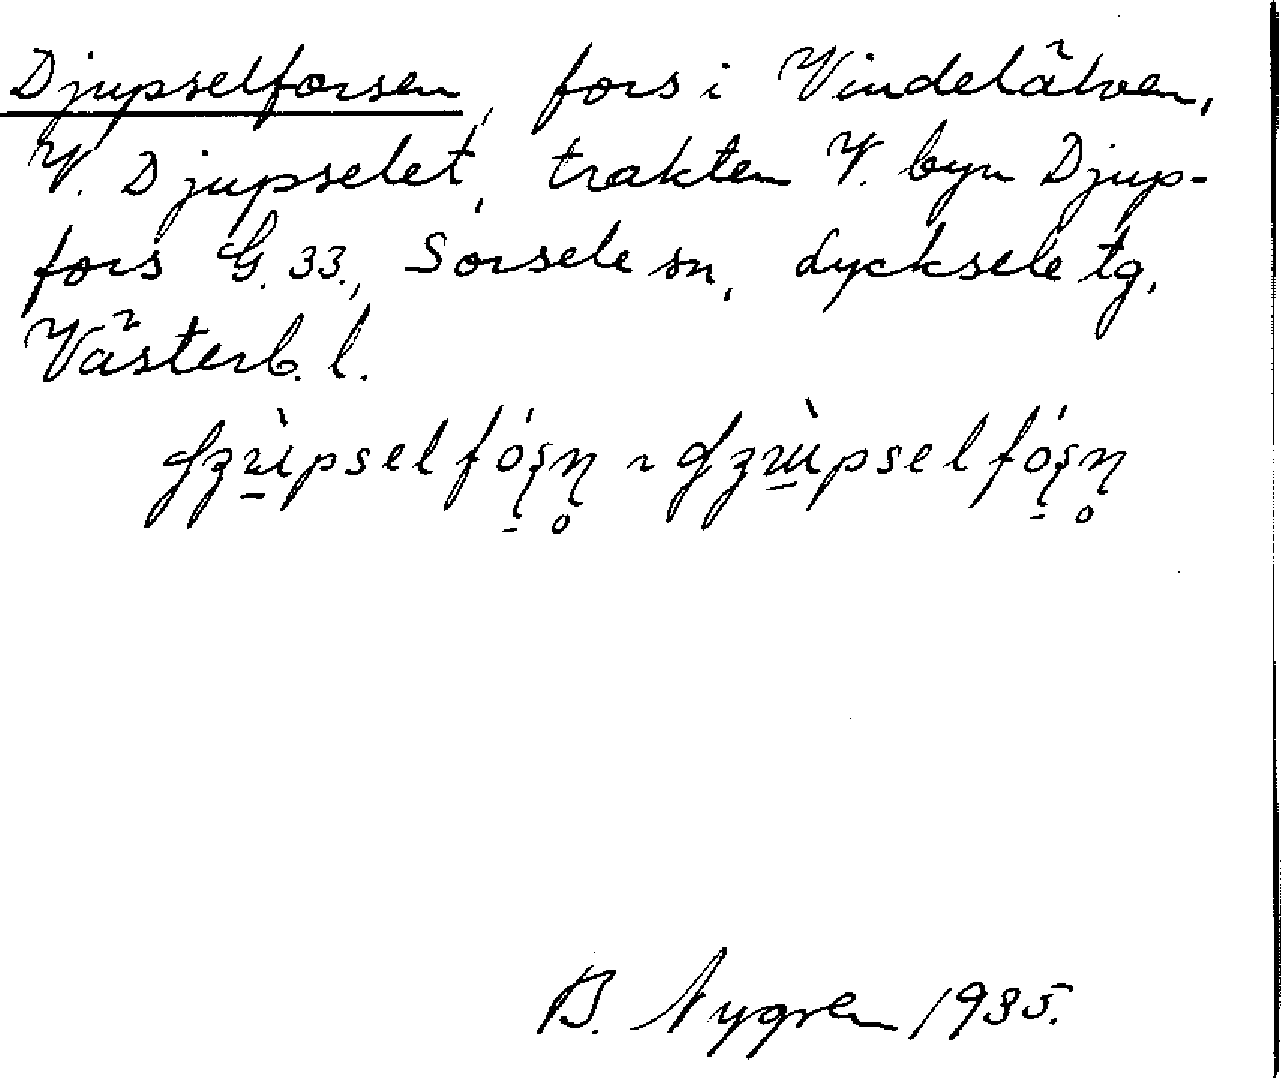 Djupselforsen, fors i Vindelälven,
V. Djupselet, trakten V. byn Djup-
fors G. 33., Sorsele sn, Lycksele tg,
Västerb. l.
B. Nygren 1935.